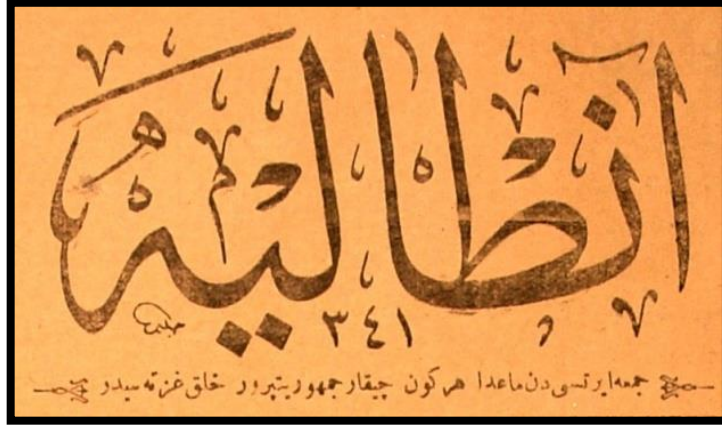 آنطالیه
٣٤١
جمعه ایرتسی دن ماعدا هر كون چیقار جمهوریتپرور خلق غزته سیدر